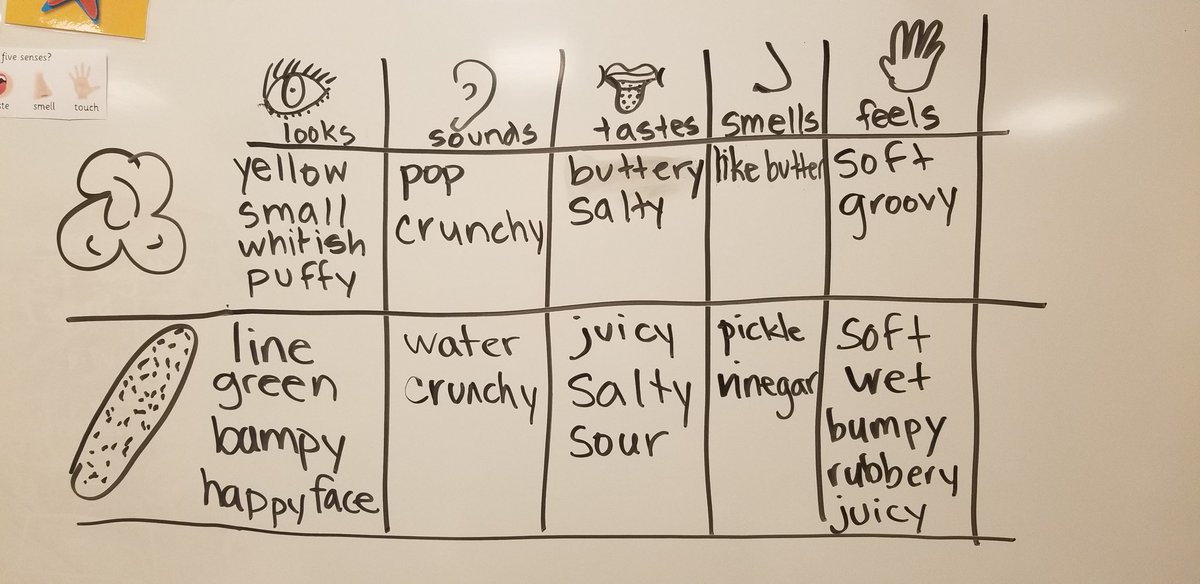 five senses?
smell touch
looks sounds tastes smells feels
yellow
small
whitish
puffy
pop
crunchy
buttery
salty
like butter
soft
groovy
line
green
bampy
happy face
water
crunchy
juicy
salty
sour
pickle
vinegar
soft
wet
bumpy
rubbery
juicy